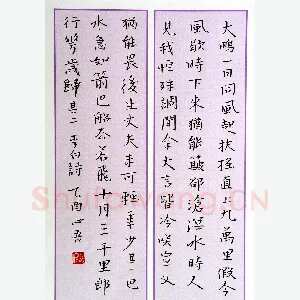 大鵬一日同風起扶搖直上九萬里假令
風歇時下來猶能簸卻滄溟水時人
見我恆殊調聞余大言皆冷笑宣父
猶能畏後生丈夫未可輕年少其一巴
水急如箭巴船去若飛十月三千里郎
行幾歲歸其二李白詩丁酉心吾